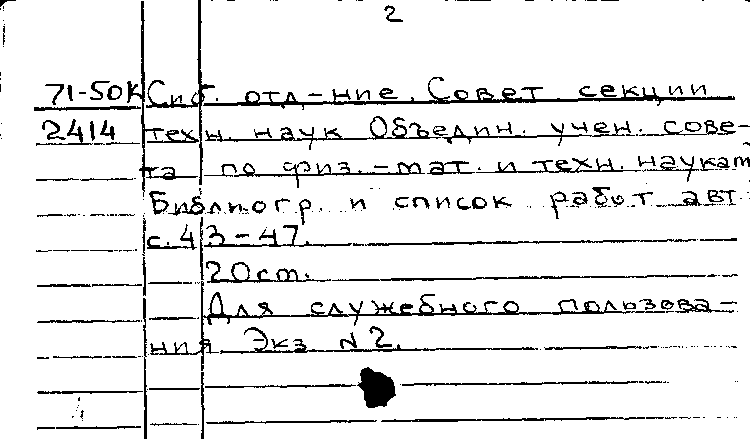 2
71-50К Сиб. отд-ние. Совет секции
2414 техн. наук Объедин. учен. сове-
та по физ.-мат. и техн. наукам
Библиогр. и список работ авт.
с. 43-47.
20 см.
Для служебного пользова-
ния Экз N2.